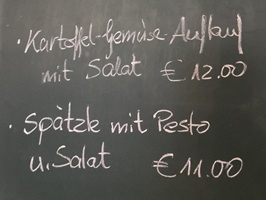 · Kartoffel-Gemüse-Auflauf
mit Salat € 12.00
· Spätzle mit Pesto
u. Salat € 11.00